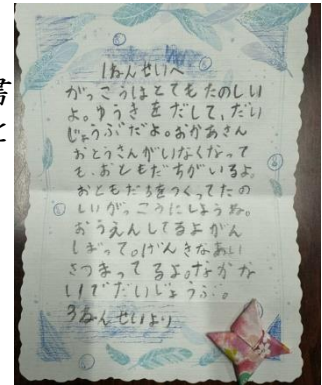 書
と
1ねんせいへ
がっこうはとてもたのしい
よ。ゆうきをだして、だい
じょうぶだよ。おかあさん
おとうさんがいなくなって
も、おともだちがいるよ。
おともだちをつくってたの
しいがっこうにしようね。
おうえんしてるよがん
ばって。げんきなあい
さつまってるよ。なかな
いでだいじょうぶ。
3ねんせいより